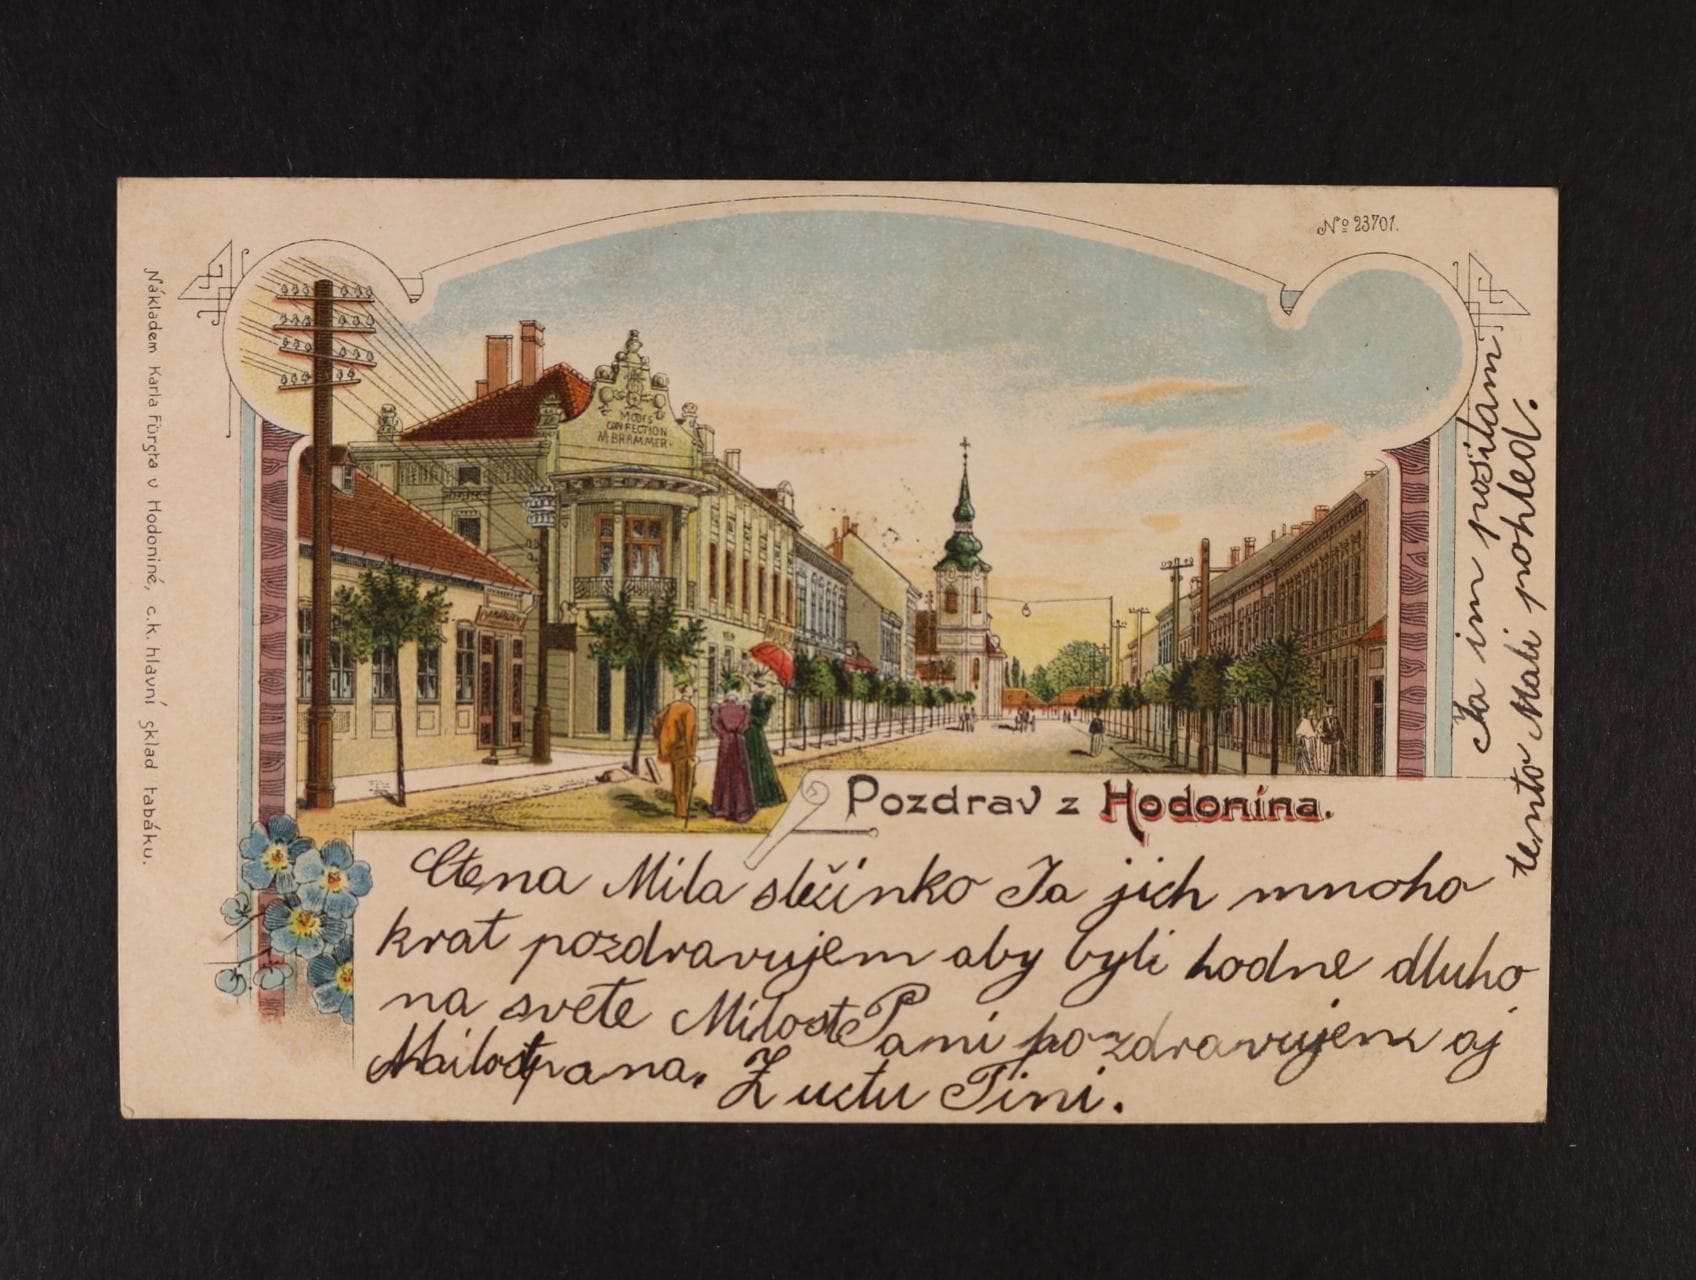 No 23701.
MODES
CONFECTION
M. BRAMMER.
Nákladem Karla Fürsta v Hodonině, c.k. hlavní sklad tabáku.
Pozdrav z Hodonína.
Ctena Mila slečinko Ja jich mnoho
krat pozdravujem aby byli hodne dluho
na svete Milost Pani pozdravujem aj
Mailostpana. Z uctu Tini.
Ja im positami
tento Mali pohled.